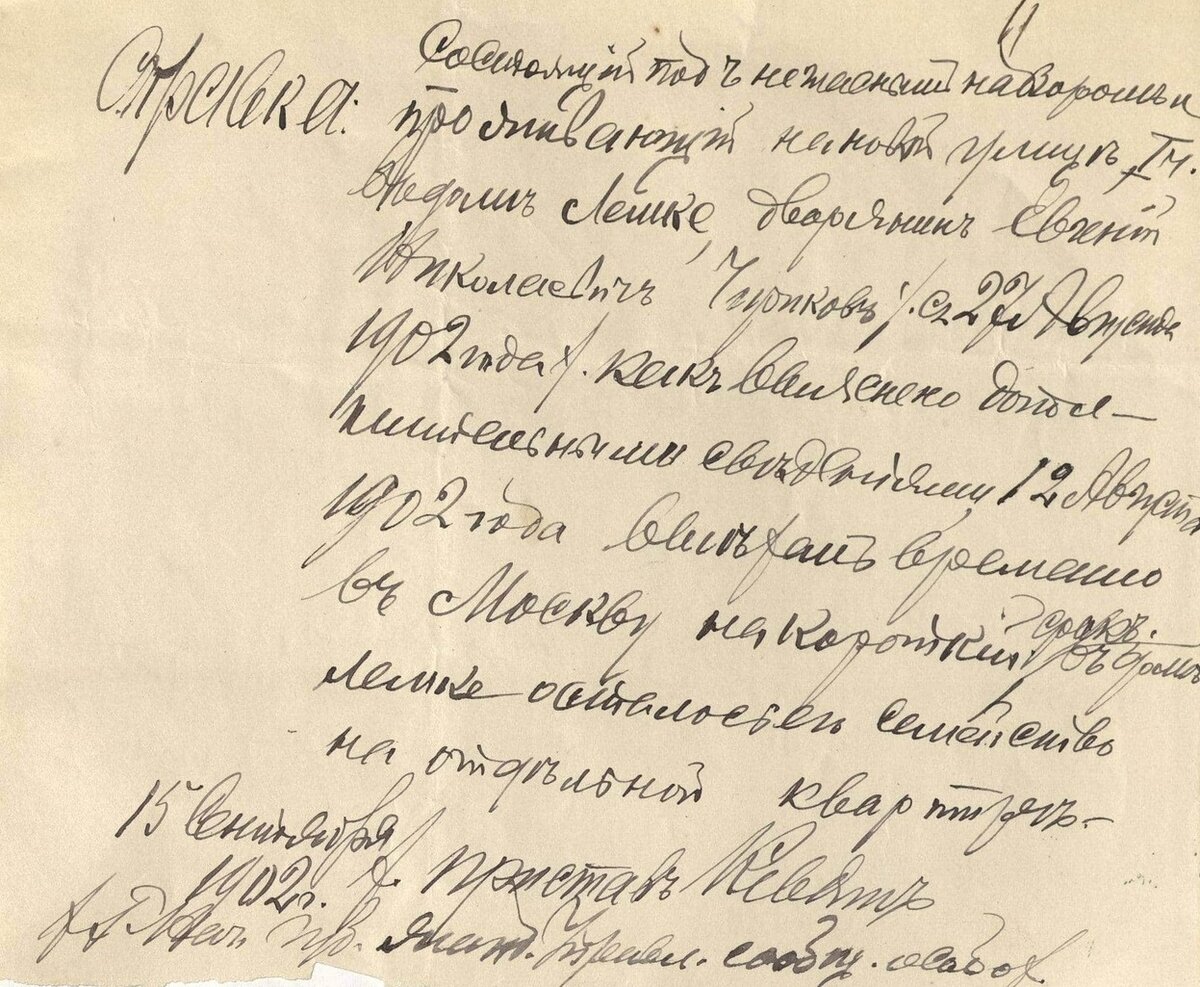 Справка:
Состоящий подъ негласный надзоромъ и
проживающий на новой улицъ, I ч.
въ домъ Лемке, дворянинъ Евгений
Николаевичъ Чириковъ /. съ 27 Августа
1902 года /. какъ выяснено допол-
нительными свъдениями 12 Августа
1902 года выъхалъ временно
въ Москву на короткий срокъ. въ домъ
Лемке осталось его семейство
на отдъльной квартиръ.-
15 Сентября
1902 г. приставъ
сообщ. особо